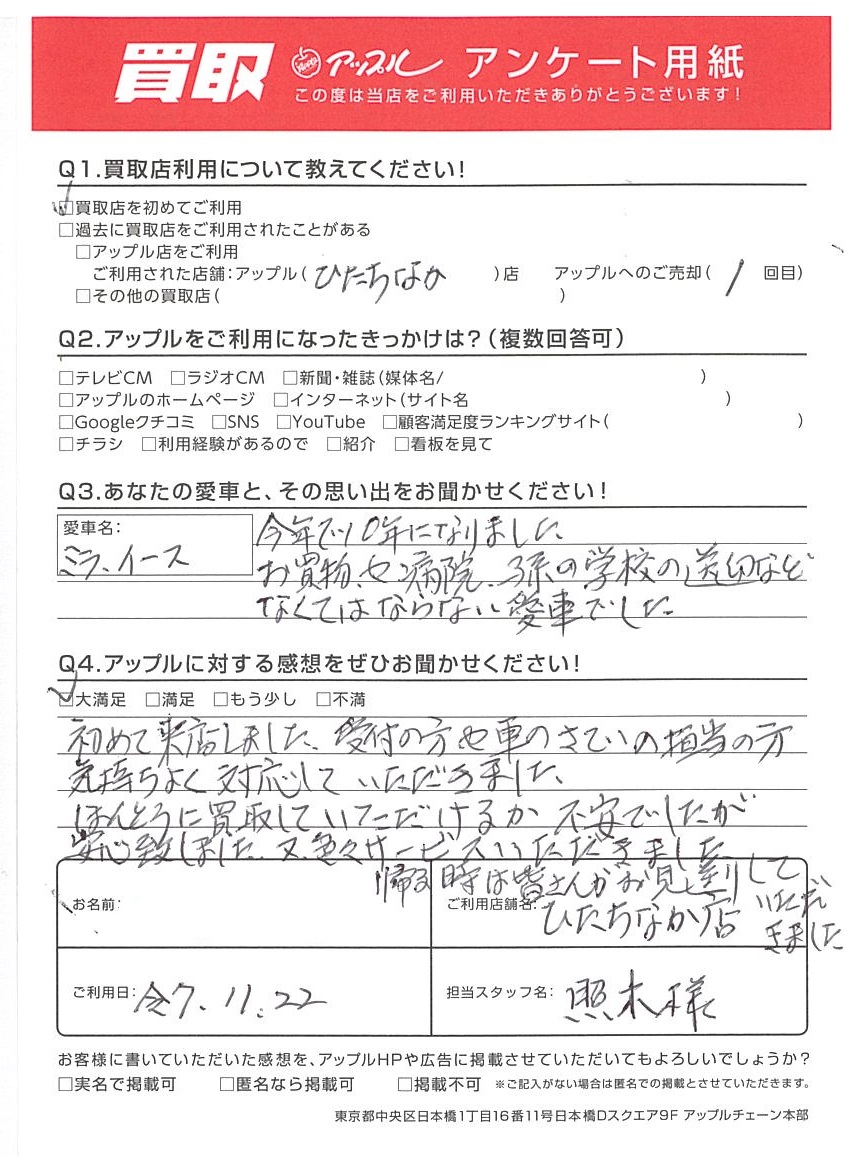 買取 アップル アンケート用紙
この度は当店をご利用いただきありがとうございます！
Q1.買取店利用について教えてください！
☑買取店を初めてご利用
□過去に買取店をご利用されたことがある
□アップル店をご利用
ご利用された店舗：アップル（ ひたちなか ）店 アップルへのご売却（ 1 回目）
□その他の買取店（ ）
Q2.アップルをご利用になったきっかけは？（複数回答可）
□テレビCM □ラジオCM □新聞・雑誌（媒体名/ ）
□アップルのホームページ □インターネット（サイト名 ）
□Googleクチコミ □SNS □YouTube □顧客満足度ランキングサイト（ ）
□チラシ □利用経験があるので □紹介 □看板を見て
Q3.あなたの愛車と、その思い出をお聞かせください！
愛車名：
ミラ、イース
今年で10年になりました
お買物、や病院、孫の学校の送迎など
なくてはならない愛車でした
Q4.アップルに対する感想をぜひお聞かせください！
☑大満足 □満足 □もう少し □不満
初めて来店しました、受付の方や車のさていの担当の方
気持ちよく対応していただきました、
ほんとうに買取していただけるか不安でしたが
安心致しました、又色々サービスいただきました
帰る時は皆さんがお見送りして
いただ
きました
お名前：
ご利用店舗名： ひたちなか店
ご利用日： 令7.11.22
担当スタッフ名： 照木様
お客様に書いていただいた感想を、アップルHPや広告に掲載させていただいてもよろしいでしょうか？
□実名で掲載可 □匿名なら掲載可 □掲載不可 ※ご記入がない場合は匿名での掲載とさせていただきます。
東京都中央区日本橋1丁目16番11号日本橋Dスクエア9F アップルチェーン本部